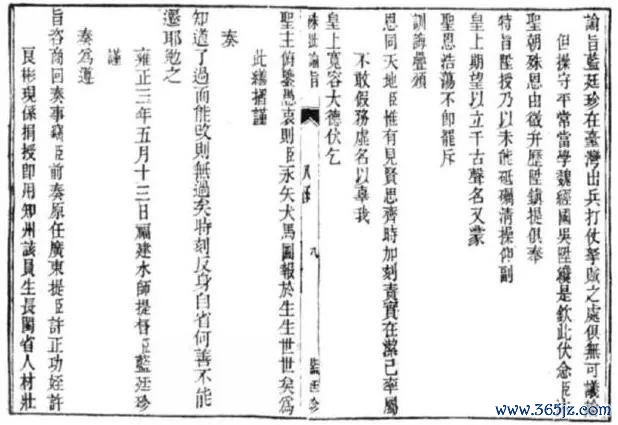 諭旨藍廷珍在臺灣出兵打仗拏賊之處俱無可議
但操守平常當學魏經國吳陞纔是欽此伏念臣
聖朝殊恩由微弁歷陞鎮提俱奉
特旨陞授乃以未能砥礪清操仰副
皇上期望以立千古聲名又蒙
聖恩浩蕩不即罷斥
訓誨疊頒
恩同天地臣惟有見賢思齊時加刻責實在潔己率屬
不敢假務虛名以辜我
皇上寬容大德伏乞
硃批諭旨 九 藍廷珍
聖主俯鑒愚衷則臣永矢犬馬圖報於生生世世矣為
此繕摺謹
奏
知道了過而能改則無過矣時刻反身自省何善不能
遷耶勉之
雍正三年五月十三日福建水師提督臣藍廷珍
謹
奏為遵
旨咨商回奏事竊臣前奏原任廣東提臣許正功姪許
良彬現係捐授即用知州該員生長閩省人材壯
www.365jz.com